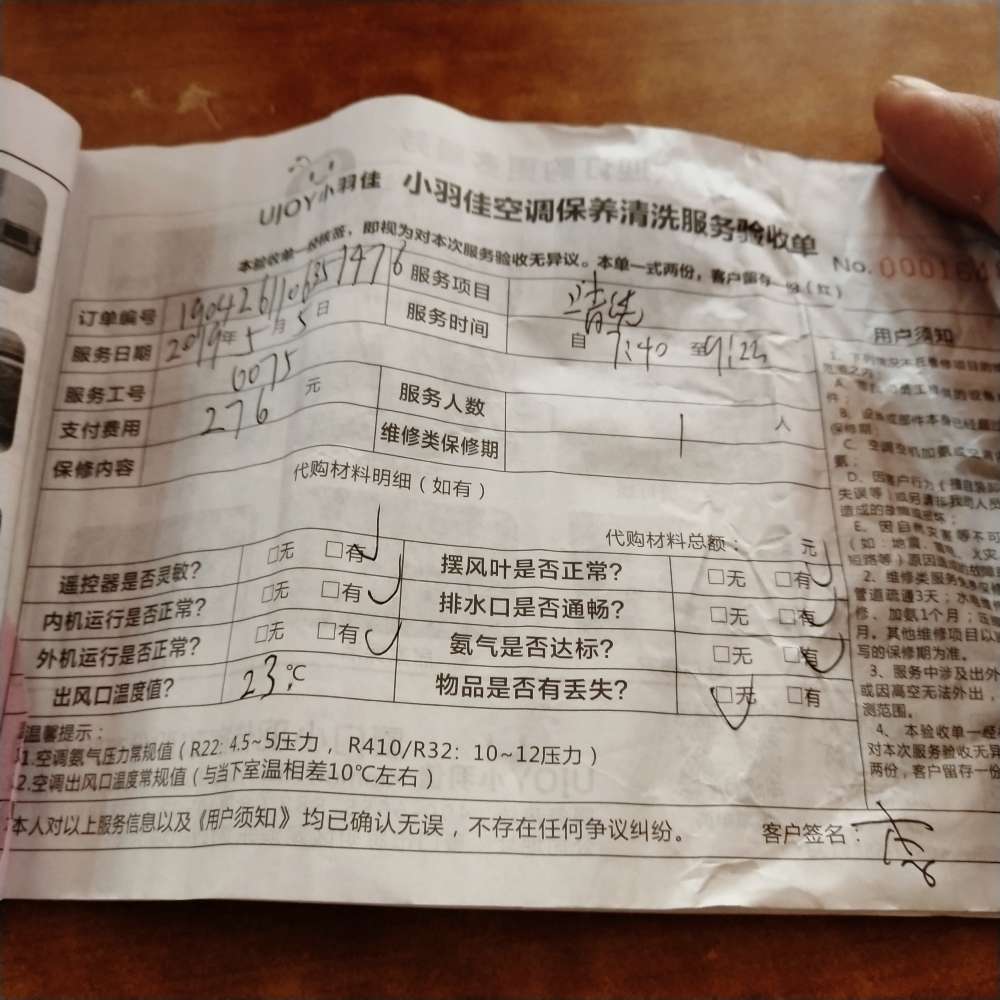 UJOY小羽佳 小羽佳空调保养清洗服务验收单
No.
本验收单一经核签，即视为对本次服务验收无异议。本单一式两份，客户留存一份（红）
订单编号 服务项目 清洗
服务日期 2019年5月5日 服务时间 自7:40至9:22
服务工号 0075 服务人数 1人
支付费用 276元 维修类保修期
保修内容
代购材料明细（如有）
代购材料总额： 元
遥控器是否灵敏? □无 □有 摆风叶是否正常? □无 □有
内机运行是否正常? □无 □有 排水口是否通畅? □无 □有
外机运行是否正常? □无 □有 氨气是否达标? □无 □有
出风口温度值? 23℃ 物品是否有丢失? □无 □有
温馨提示：
1.空调氨气压力常规值（R22: 4.5~5压力，R410/R32: 10~12压力）
2.空调出风口温度常规值（与当下室温相差10℃左右）
本人对以上服务信息以及《用户须知》均已确认无误，不存在任何争议纠纷。 客户签名：
用户须知
件；
B、设备或部件本身已经超过
保修期；
C、空调空机加氨或
氨；
D、因客户行为（擅自
失误等）或另请非我司人员
造成的故障或损坏；
E、因自然灾害等不可
（如：地震、雷电、火灾
短路等）原因造成的故障
2、维修类服务免费保修
管道疏通3天；水电维
修、加氨1个月；
月。其他维修项目以
写的保修期为准。
3、服务中涉及出外
或因高空无法外出，
测范围。
4、本验收单一经
对本次服务验收无异
两份，客户留存一份